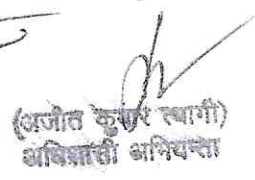 (अजीत कुमार त्यागी)
अधिशासी अभियन्ता